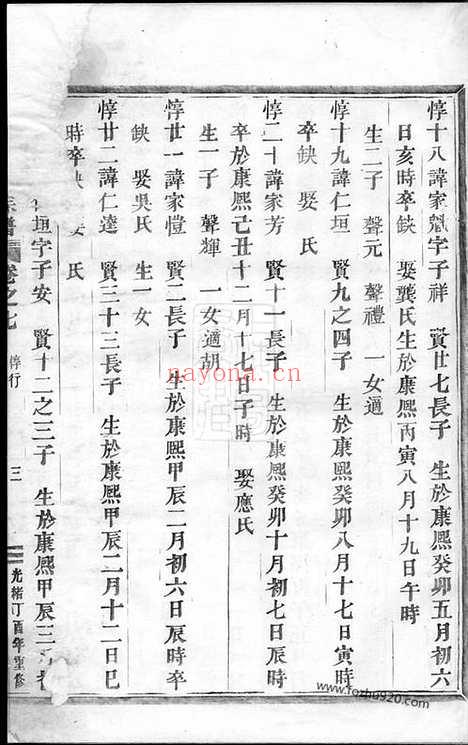 惇十八諱家魁字子祥 賢廿七長子 生於康熙癸卯五月初六
日亥時卒缺 娶龔氏生於康熙丙寅八月十九日午時
生二子 聲元 聲禮 一女適
惇十九諱仁垣 賢九之四子 生於康熙癸卯八月十七日寅時
卒缺 娶 氏
惇二十諱家芳 賢十一長子 生於康熙癸卯十月初七日辰時
卒於康熙己丑十二月十七日子時 娶應氏
生一子 聲輝 一女適胡
惇廿一諱家愷 賢二長子 生於康熙甲辰二月初六日辰時卒
缺 娶吳氏 生一女
惇廿二諱仁達 賢三十三長子 生於康熙甲辰二月十二日巳
時卒缺 娶 氏
垣字子安 賢十二之三子 生於康熙甲辰三月初
宗譜 卷之七 惇行 三 光緒丁酉年重修
nayona.cn
www.fozhu920.com